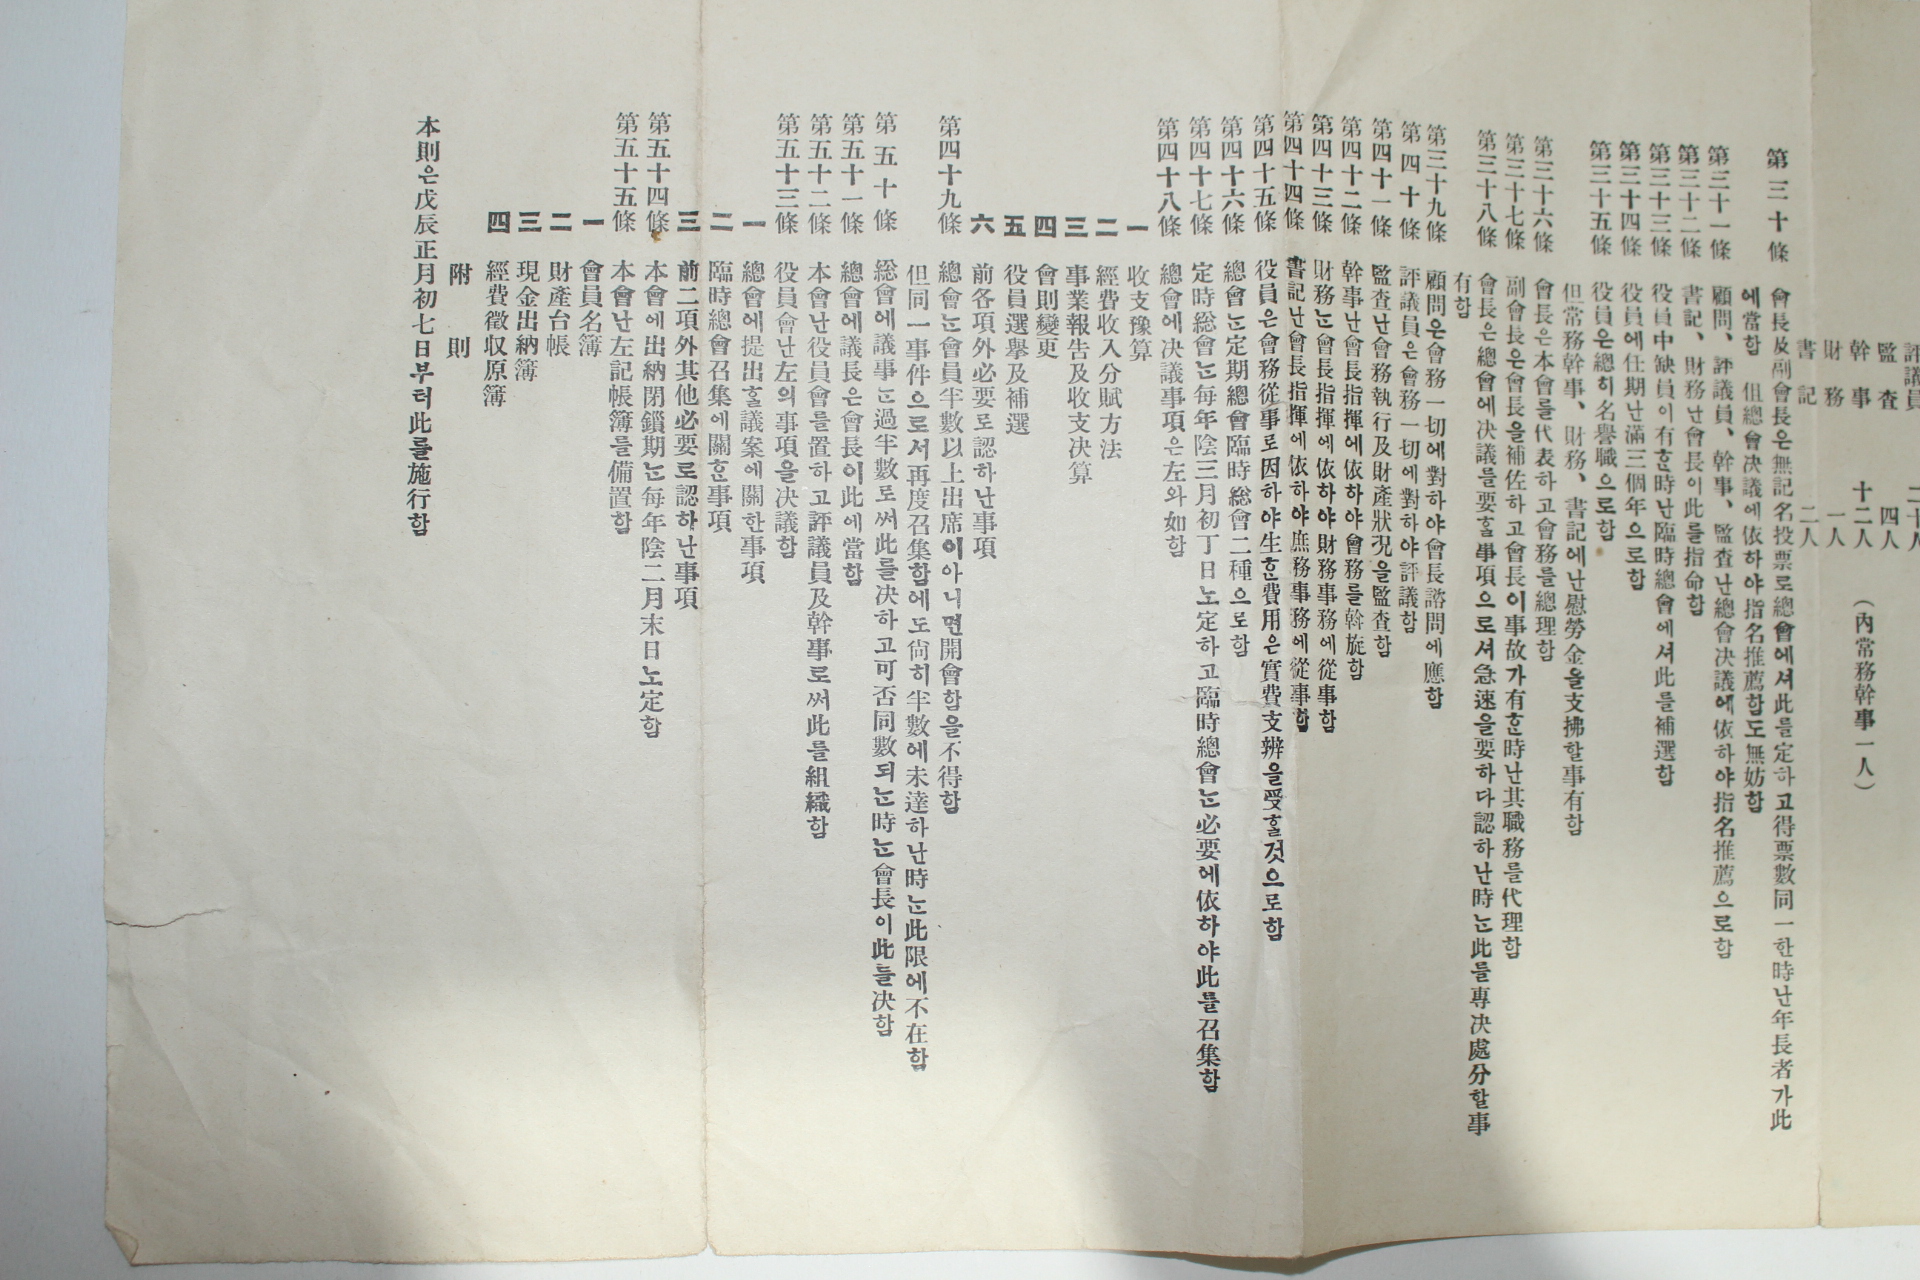 評議員　二十人
監査　四人
幹事　十二人　（內常務幹事一人）
財務　一人
書記　二人
第三十條　會長及副會長은無記名投票로總會에셔此를定하고得票數同一한時난年長者가此
에當함　但總會決議에依하야指名推薦함도無妨함
第三十一條　顧問、評議員、幹事、監査난總會決議에依하야指名推薦으로함
第三十二條　書記、財務난會長이此를指命함
第三十三條　役員中缺員이有ᄒᆞᆫ時난臨時總會에셔此를補選함
第三十四條　役員에任期난滿三個年으로함
第三十五條　役員은總히名譽職으로함
但常務幹事、財務、書記에난慰勞金을支拂할事有함
第三十六條　會長은本會를代表하고會務를總理함
第三十七條　副會長은會長을補佐하고會長이事故가有ᄒᆞᆫ時난其職務를代理함
第三十八條　會長은總會에決議를要ᄒᆞᆯ事項으로셔急速을要하다認하난時ᄂᆞᆫ此를專決處分할事
有함
第三十九條　顧問은會務一切에對하야會長諮問에應함
第四十條　評議員은會務一切에對하야評議함
第四十一條　監査난會務執行及財產狀況을監査함
第四十二條　幹事난會長指揮에依하야會務를斡旋함
第四十三條　財務ᄂᆞᆫ會長指揮에依하야財務事務에從事함
第四十四條　書記난會長指揮에依하야庶務事務에從事함
第四十五條　役員은會務從事로因하야生ᄒᆞᆫ費用은實費支辨을受ᄒᆞᆯ것으로함
第四十六條　總會ᄂᆞᆫ定期總會臨時総會二種으로함
第四十七條　定時総會ᄂᆞᆫ每年陰三月初丁日노定하고臨時總會ᄂᆞᆫ必要에依하야此를召集함
第四十八條　總會에決議事項은左와如함
一　收支豫算
二　經費收入分賦方法
三　事業報告及收支決算
四　會則變更
五　役員選擧及補選
六　前各項外必要로認하난事項
第四十九條　總會ᄂᆞᆫ會員半數以上出席이아니면開會함을不得함
但同一事件으로서再度召集함에도尙히半數에未達하난時ᄂᆞᆫ此限에不在함
第五十條　総會에議事ᄂᆞᆫ過半數로써此를決하고可否同數되ᄂᆞᆫ時ᄂᆞᆫ會長이此를決함
第五十一條　總會에議長은會長이此에當함
第五十二條　本會난役員會를置하고評議員及幹事로써此를組織함
第五十三條　役員會난左의事項을決議함
一　總會에提出ᄒᆞᆯ議案에關한事項
二　臨時總會召集에關ᄒᆞᆫ事項
三　前二項外其他必要로認하난事項
第五十四條　本會에出納閉鎖期ᄂᆞᆫ每年陰二月末日노定함
第五十五條　本會난左記帳簿를備置함
一　會員名簿
二　財產台帳
三　現金出納簿
四　經費徵収原簿
附則
本則은戊辰正月初七日부터此를施行함